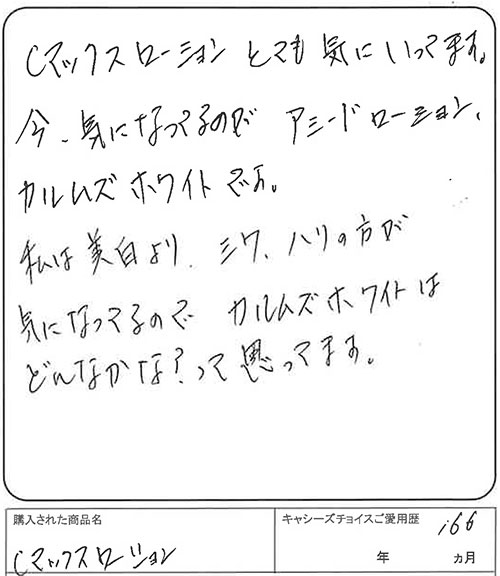 Cマックスローション とても 気に いってます。
今、気になってるのが アミードローション、
カルムズ ホワイトです。
私は 美白より、シワ、ハリの方が
気になってるので カルムズホワイトは
どんなかな？って思ってます。
購入された商品名
キャシーズチョイスご愛用歴
Cマックスローション
年 ヵ月